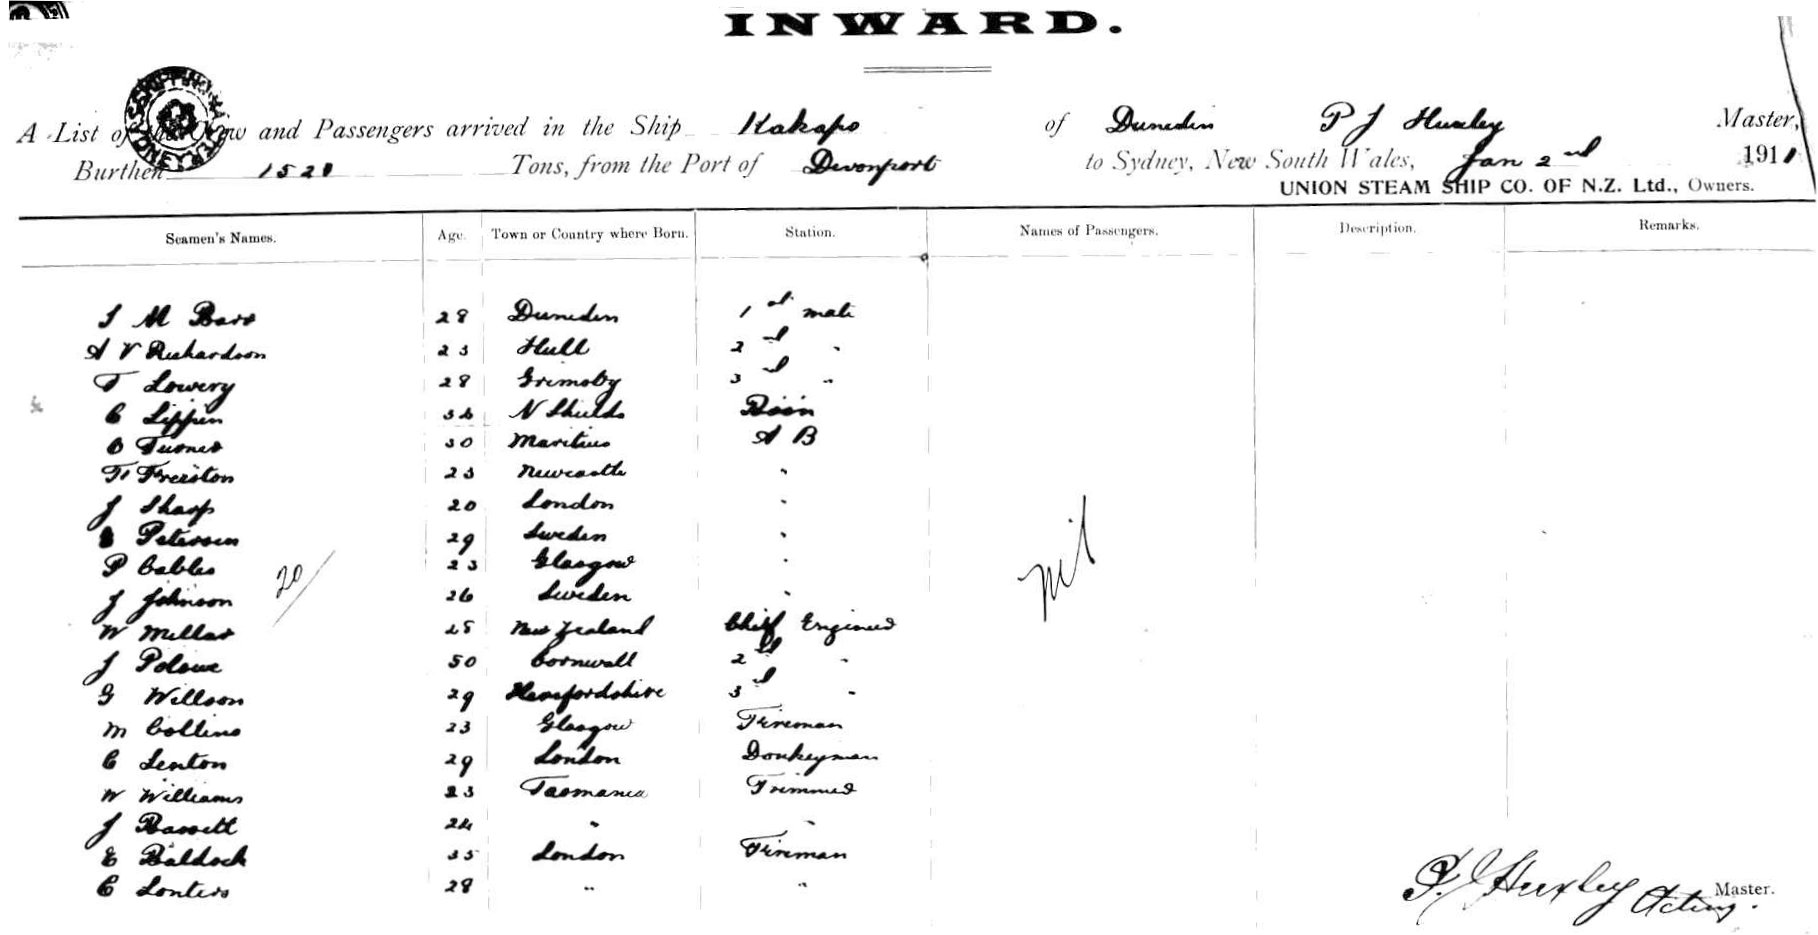 INWARD.
A List of the Crew and Passengers arrived in the Ship Kakapo of Dunedin P J Huxley Master,
Burthen 1521 Tons, from the Port of Devonport to Sydney, New South Wales, Jan 2nd 1911
UNION STEAM SHIP CO. OF N.Z. Ltd., Owners.
Seamen's Names. Age. Town or Country where Born. Station. Names of Passengers. Description. Remarks.
J M Barr 28 Dunedin 1st mate
A V Richardson 23 Hull 2nd "
T Lowery 28 Grimsby 3rd "
C Lippin N Shields Bosn
O Turner 30 Maritius A B
Freeston 23 Newcastle "
J Sharp 20 London "
Petersen 29 Sweden "
P Cables 23 Glasgow "
J Johnson 26 Sweden "
20/
nil
W Millar 25 New Zealand Chief Engineer
J Polowe 50 Cornwall 2nd "
G Willson 29 Herefordshire 3rd "
M Collins 23 Glasgow Fireman
C Lenton 29 London Donkeyman
W Williams 23 Tasmania Trimmer
J Bassett 24 " "
E Baldock 35 London Fireman
C Lonters 28 " "
P. J Huxley Master.
Acting.